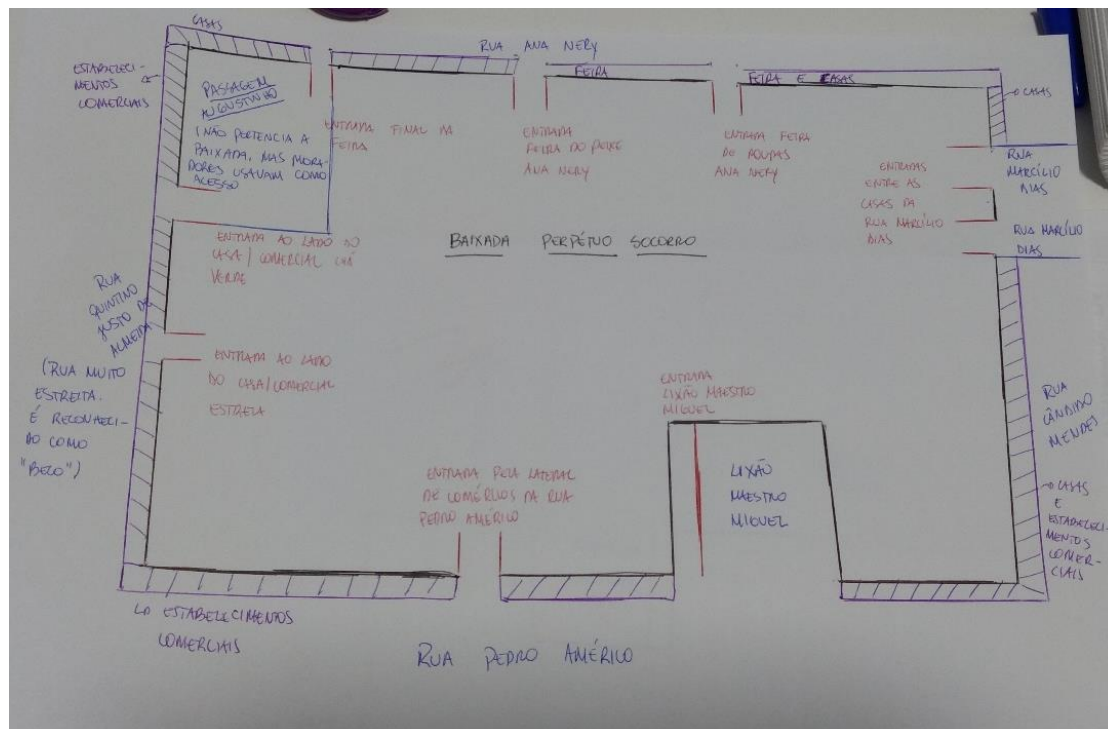 CASAS
RUA ANA NERY
FEIRA
FEIRA E CASAS
ESTABELECI-
MENTOS
COMERCIAIS
PASSAGEM
AUGUSTINHO
(NÃO PERTENCIA A
BAIXADA, MAS MORA-
DORES USAVAM COMO
ACESSO
ENTRADA FINAL DA
FEIRA
ENTRADA
FEIRA DO PEIXE
ANA NERY
ENTRADA FEIRA
DE ROUPAS
ANA NERY
CASAS
RUA
MARCÍLIO
DIAS
ENTRADAS
ENTRE AS
CASAS DA
RUA MARCÍLIO
DIAS
RUA MARCÍLIO
DIAS
BAIXADA PERPÉTUO SOCORRO
ENTRADA AO LADO DO
CASA/COMERCIAL CHÃ
VERDE
RUA
QUINTINO
JUSTO DE
ALMEIDA
(RUA MUITO
ESTREITA.
É RECONHECI-
DO COMO
"BECO")
ENTRADA AO LADO
DO CASA/COMERCIAL
ESTRELA
ENTRADA
LIXÃO MAESTRO
MIGUEL
LIXÃO
MAESTRO
MIGUEL
RUA
CÂNDIDO
MENDES
CASAS
E
ESTABELECI-
MENTOS
COMER-
CIAIS
ENTRADA PELA LATERAL
DE COMÉRCIOS DA RUA
PEDRO AMÉRICO
ESTABELECIMENTOS
COMERCIAIS
RUA PEDRO AMÉRICO